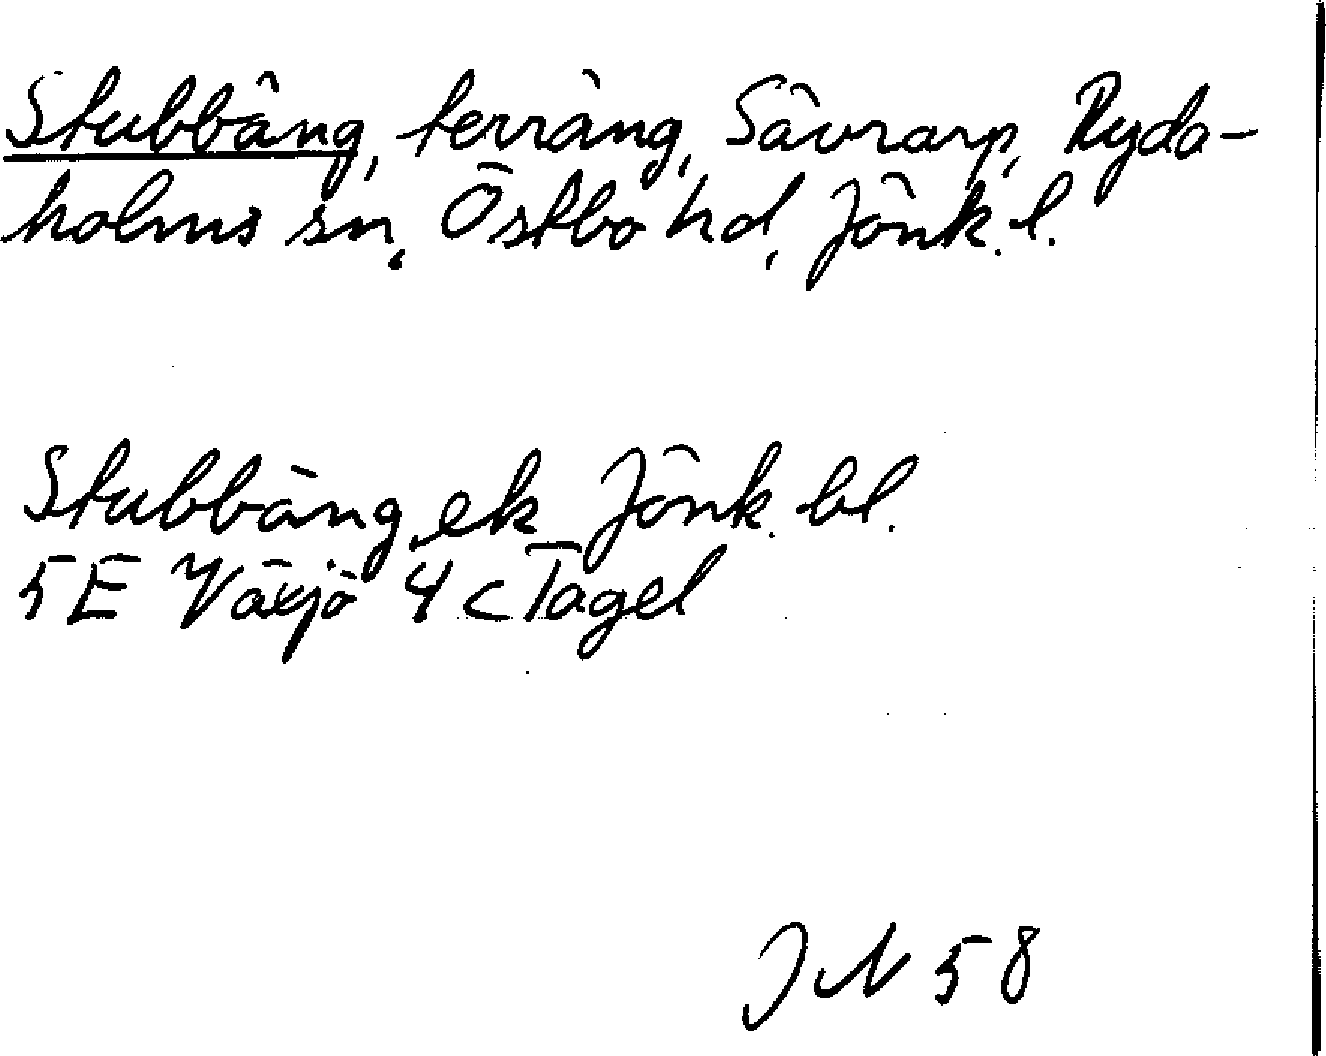 Stubbäng, terräng, Sävrarp, Ryda-
holms sn, Östbo hd, Jönk. l.
Stubbäng, ek Jönk. bl.
5E Växjö 4c Tagel
JN 58